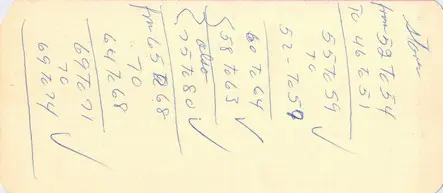 from 52 to 54
To 46 to 51
55 to 59
to
52 - to 59
60 to 64 ✓
58 to 63
also
75 to 80 ✓
from 65 to 68
to
64 to 68
69 to 71
to
69 to 74 ✓